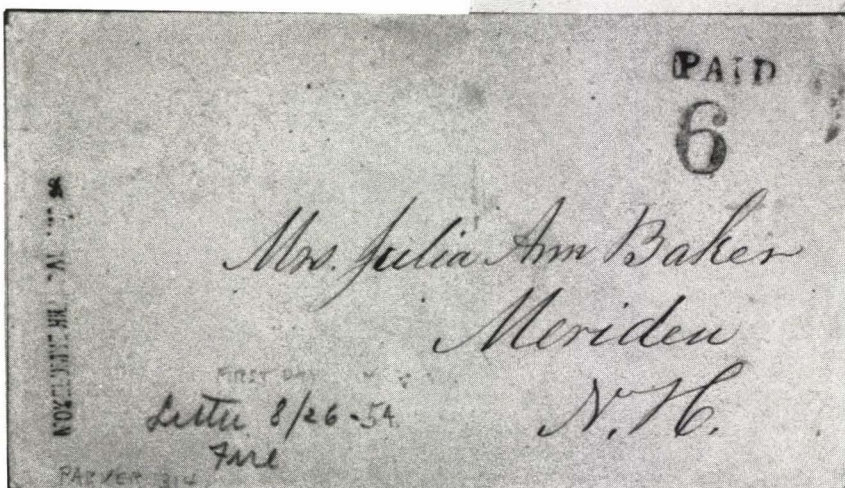 PAID
6
Mrs. Julia Ann Baker
Meriden
N. H.
FIRST DAY
Letter 8/26-54
Fine